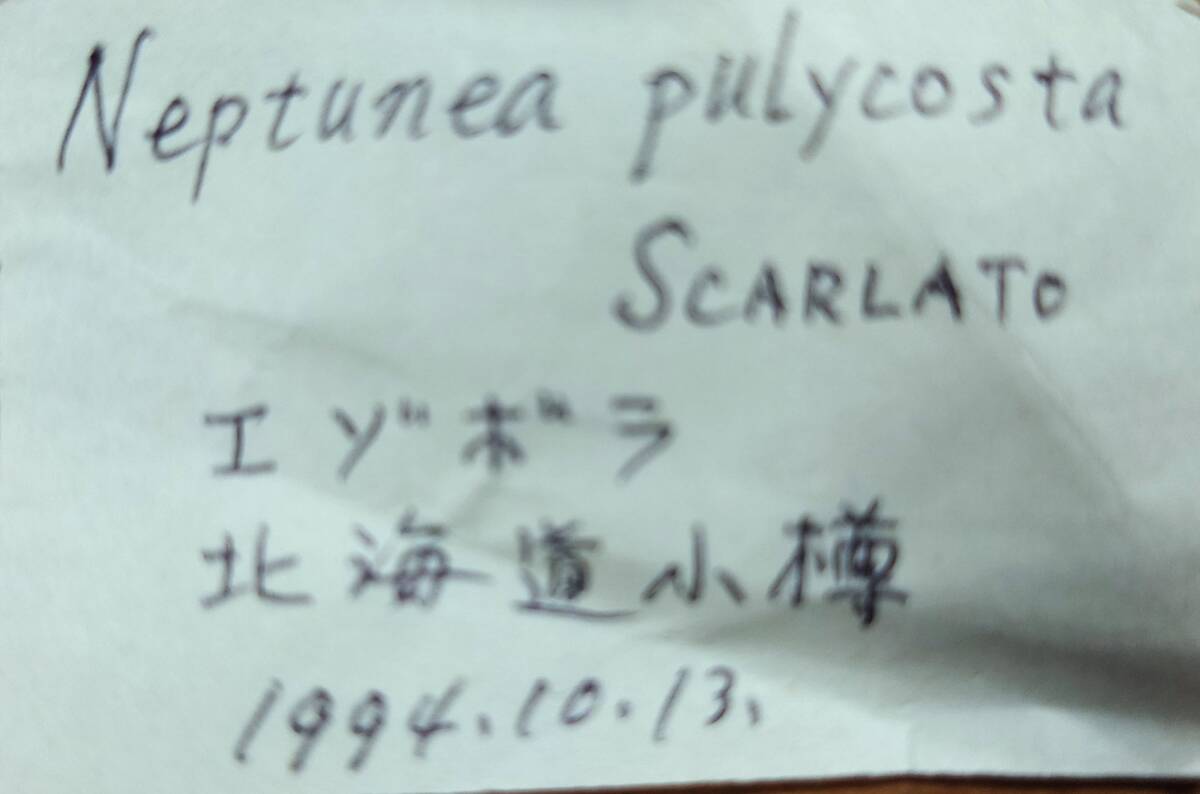 Neptunea pulycosta
SCARLATO
エゾボラ
北海道小樽
1994.10.13.